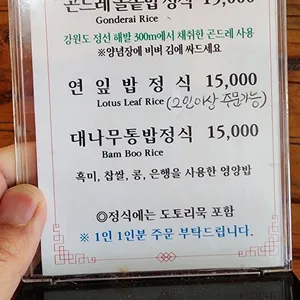 곤드레 돌솥밥 정식 15,000
Gonderai Rice
강원도 정선 해발 300m에서 채취한 곤드레 사용
※양념장에 비벼 김에 싸드세요
연 잎 밥 정 식 15,000
Lotus Leaf Rice (2인이상 주문가능)
대나무통밥정식 15,000
Bam Boo Rice
흑미, 찹쌀, 콩, 은행을 사용한 영양밥
◎정식에는 도토리묵 포함
※ 1인 1인분 주문 부탁드립니다.